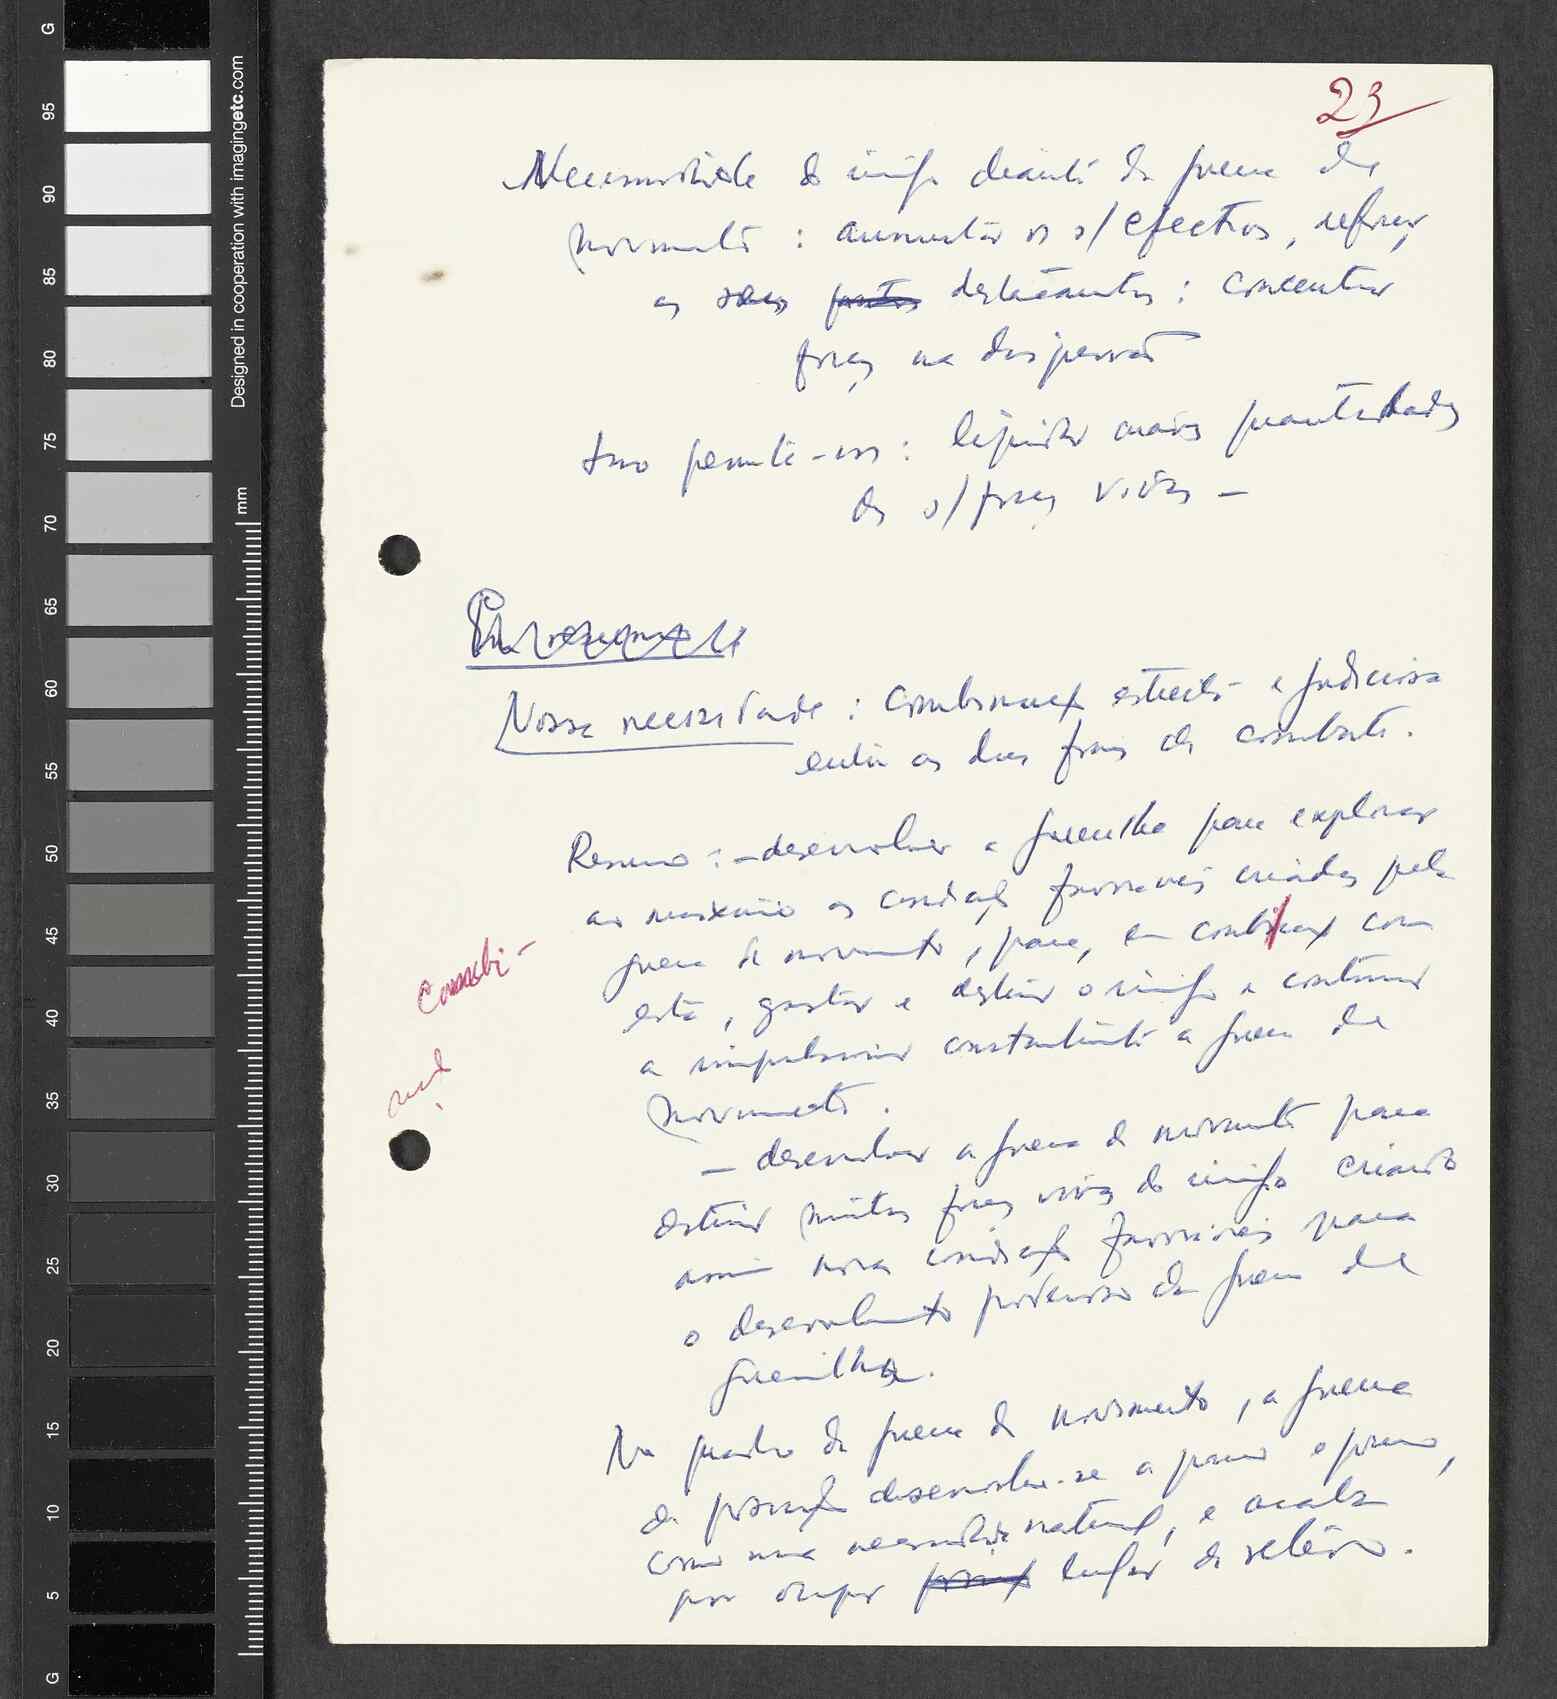 23
Necessidade do inimigo diante da guerra de
movimento : aumentar os s/ efectivos, reforçar
os seus destacamentos : concentrar
forças na dispersão
Isso permite-nos : liquidar mais quantidades
de s/ forças vivas –
Nossa necessidade : combinação estreita e judiciosa
entre as duas formas de combate.
Resumo : – desenvolver a guerrilha para explorar
ao máximo as condições favoráveis criadas pela
guerra de movimento, para, em combinação com
esta, gastar e destruir o inimigo e continuar
a impulsionar constantemente a guerra de
movimento.
– desenvolver a guerra de movimento para
destruir muitas forças vivas do inimigo criando
assim novas condições favoráveis para
o desenvolvimento da guerra de
guerrilha.
No quadro da guerra de movimento, a guerra
de posição desenvolve-se a pouco e pouco,
como uma necessidade natural, e acaba
por ocupar lugar de relêvo.
Combi-
nação
Designed in cooperation with imagingetc.com
mm
G
95
90
85
80
75
70
65
60
55
50
45
40
35
30
25
20
15
10
5
G